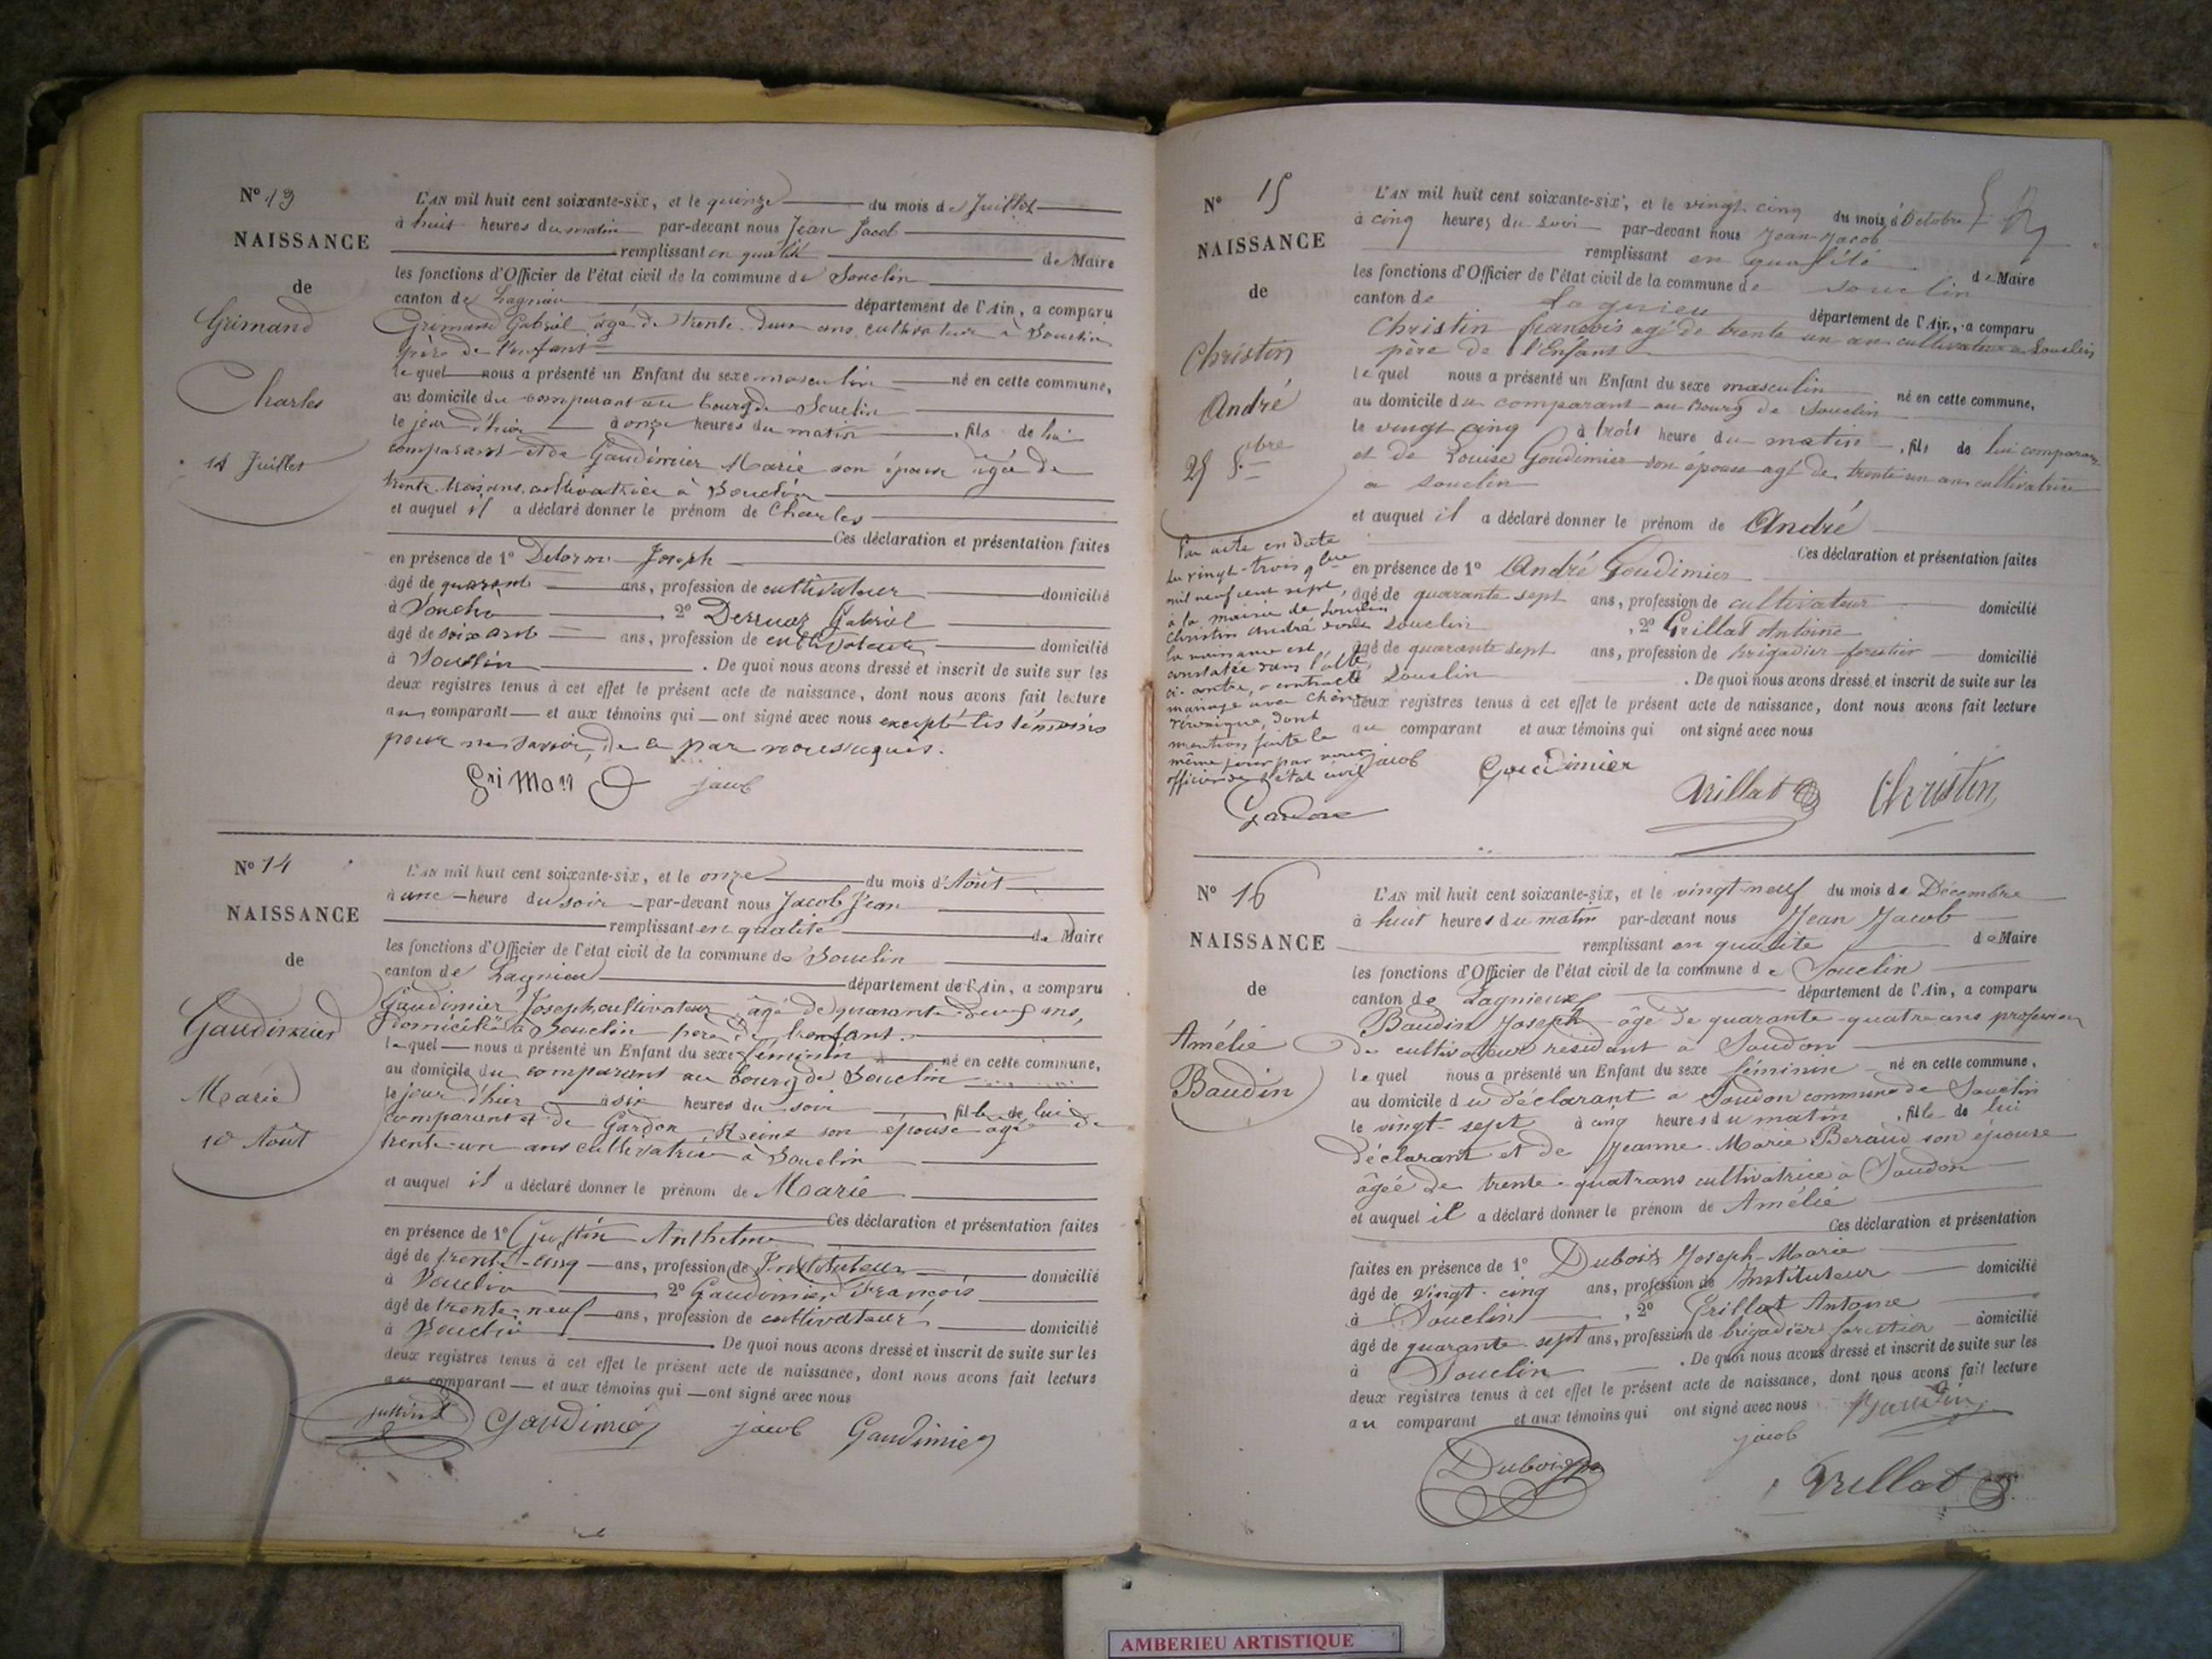 N° 13
NAISSANCE
de
Grimand
Charles
14 Juillet
L'AN mil huit cent soixante-six, et le quinze du mois de Juillet
à huit heures du matin par-devant nous Jean Jacob
remplissant en qualité de Maire
les fonctions d'Officier de l'état civil de la commune de Souclin
canton de Lagnieu département de l'Ain, a comparu
Grimand Gabriel âgé de trente deux ans cultivateur à Souclin
père de l'enfant
lequel nous a présenté un Enfant du sexe masculin né en cette commune,
au domicile du comparant au bourg de Souclin
le jour d'hier à onze heures du matin, fils de lui
comparant et de Gaudimier Marie son épouse âgée de
trente trois ans cultivatrice à Souclin
et auquel il a déclaré donner le prénom de Charles
Ces déclaration et présentation faites
en présence de 1° Delorme Joseph
âgé de quarante ans, profession de cultivateur domicilié
à Souclin 2° Derruaz Gabriel
âgé de soixante ans, profession de cultivateur domicilié
à Souclin. De quoi nous avons dressé et inscrit de suite sur les
deux registres tenus à cet effet le présent acte de naissance, dont nous avons fait lecture
au comparant et aux témoins qui ont signé avec nous excepté les témoins
pour ne savoir, de ce par nous requis.
GriManD jacob
N° 14
NAISSANCE
de
Gaudimier
Marie
10 Août
L'AN mil huit cent soixante-six, et le onze du mois d'Août
à une heure du soir par-devant nous Jacob Jean
remplissant en qualité de Maire
les fonctions d'Officier de l'état civil de la commune de Souclin
canton de Lagnieu département de l'Ain, a comparu
Gaudimier Joseph cultivateur âgé de quarante deux ans,
domicilié à Souclin père de l'enfant.
lequel nous a présenté un Enfant du sexe féminin né en cette commune,
au domicile du comparant au bourg de Souclin
le jour d'hier à six heures du soir fille de lui
comparant et de Gardon Reine son épouse âgée de
trente-un ans cultivatrice à Souclin
et auquel il a déclaré donner le prénom de Marie
Ces déclaration et présentation faites
en présence de 1° Justin Anthelme
âgé de trente-cinq ans, profession de Instituteur domicilié
à Souclin 2° Gaudimier François
âgé de trente-neuf ans, profession de cultivateur domicilié
à Souclin De quoi nous avons dressé et inscrit de suite sur les
deux registres tenus à cet effet le présent acte de naissance, dont nous avons fait lecture
au comparant et aux témoins qui ont signé avec nous
Justin Gaudimier jacob Gaudimier
N° 15
NAISSANCE
de
Christin
André
25 8bre
L'AN mil huit cent soixante-six, et le vingt cinq du mois d'Octobre
à cinq heures du soir par-devant nous Jean Jacob
remplissant en qualité de Maire
les fonctions d'Officier de l'état civil de la commune de Souclin
canton de Lagnieu département de l'Ain, a comparu
Christin françois agé de trente un an cultivateur a Souclin
père de l'Enfant
lequel nous a présenté un Enfant du sexe masculin né en cette commune,
au domicile du comparant au Bourg de Souclin
le vingt cinq à trois heure du matin, fils de lui comparant
et de Louise Goudimier son épouse agé de trente un ans cultivatrice
a Souclin
et auquel il a déclaré donner le prénom de André
Ces déclaration et présentation faites
en présence de 1° André Goudimier
âgé de quarante sept ans, profession de cultivateur domicilié
Souclin, 2° Grillat Antoine
âgé de quarante sept ans, profession de brigadier forestier domicilié
à Souclin. De quoi nous avons dressé et inscrit de suite sur les
deux registres tenus à cet effet le présent acte de naissance, dont nous avons fait lecture
au comparant et aux témoins qui ont signé avec nous
jacob Goudimier Grillat Christin
Par acte en date
du vingt-trois 9bre
mil neuf cent sept,
à la mairie de Souclin
Christin André dont
la naissance est
constatée dans l'acte
ci-contre, a contracté
mariage avec Chêne
Véronique, dont
mention faite le
même jour par nous
officier de l'état civil
Gardon
N° 16
NAISSANCE
de
Amélie
Baudin
L'AN mil huit cent soixante-six, et le vingt-neuf du mois de Décembre
à huit heures du matin par-devant nous Jean Jacob
remplissant en qualité de Maire
les fonctions d'Officier de l'état civil de la commune de Souclin
canton de Lagnieux département de l'Ain, a comparu
Baudin Joseph âgé de quarante-quatre ans profession
de cultivateur residant à Soudon
lequel nous a présenté un Enfant du sexe féminin né en cette commune,
au domicile du déclarant a Soudon commune de Souclin
le vingt-sept à cinq heures du matin, fille de lui
déclarant et de Jeanne-Marie Beraud son épouse
âgée de trente-quatrans cultivatrice à Soudon
et auquel il a déclaré donner le prénom de Amélie
Ces déclaration et présentation
faites en présence de 1° Dubois Joseph-Marie
âgé de vingt-cinq ans, profession de Instituteur domicilié
à Souclin, 2° Grillat Antoine
âgé de quarante-sept ans, profession de brigadier forestier domicilié
à Souclin. De quoi nous avons dressé et inscrit de suite sur les
deux registres tenus à cet effet le présent acte de naissance, dont nous avons fait lecture
au comparant et aux témoins qui ont signé avec nous Baudin
jacob
Dubois Grillat
AMBERIEU ARTISTIQUE